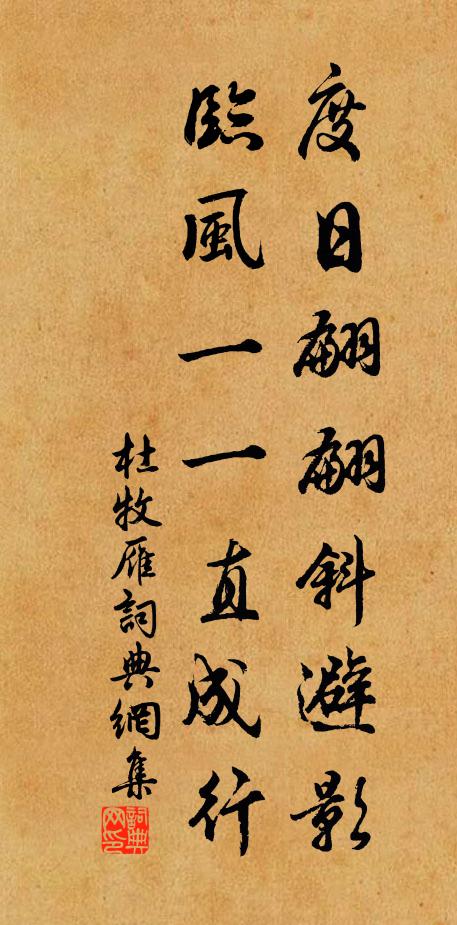 度日翩翩斜避影
臨風一一直成行
杜牧雁詞典網集
詞典網印